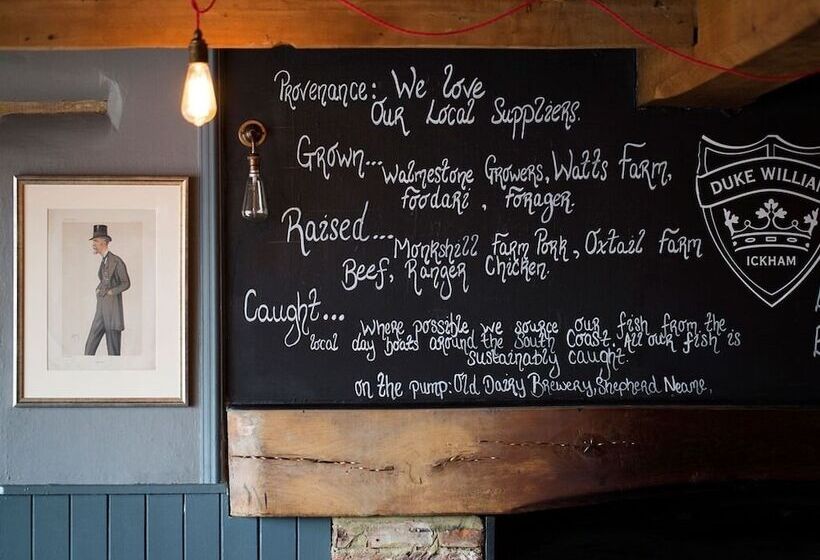 Provenance: We love
Our Local Suppliers.
Grown... Walmestone Growers, Watts Farm,
foodari , Forager.
Raised... Monkshill Farm Pork, Oxtail Farm
Beef, Ranger Chicken.
Caught... Where possible, we source our fish from the
local day boats around the South Coast. All our fish is
sustainably caught.
on the pump: Old Dairy Brewery, Shepherd Neame.
DUKE WILLIA
ICKHAM